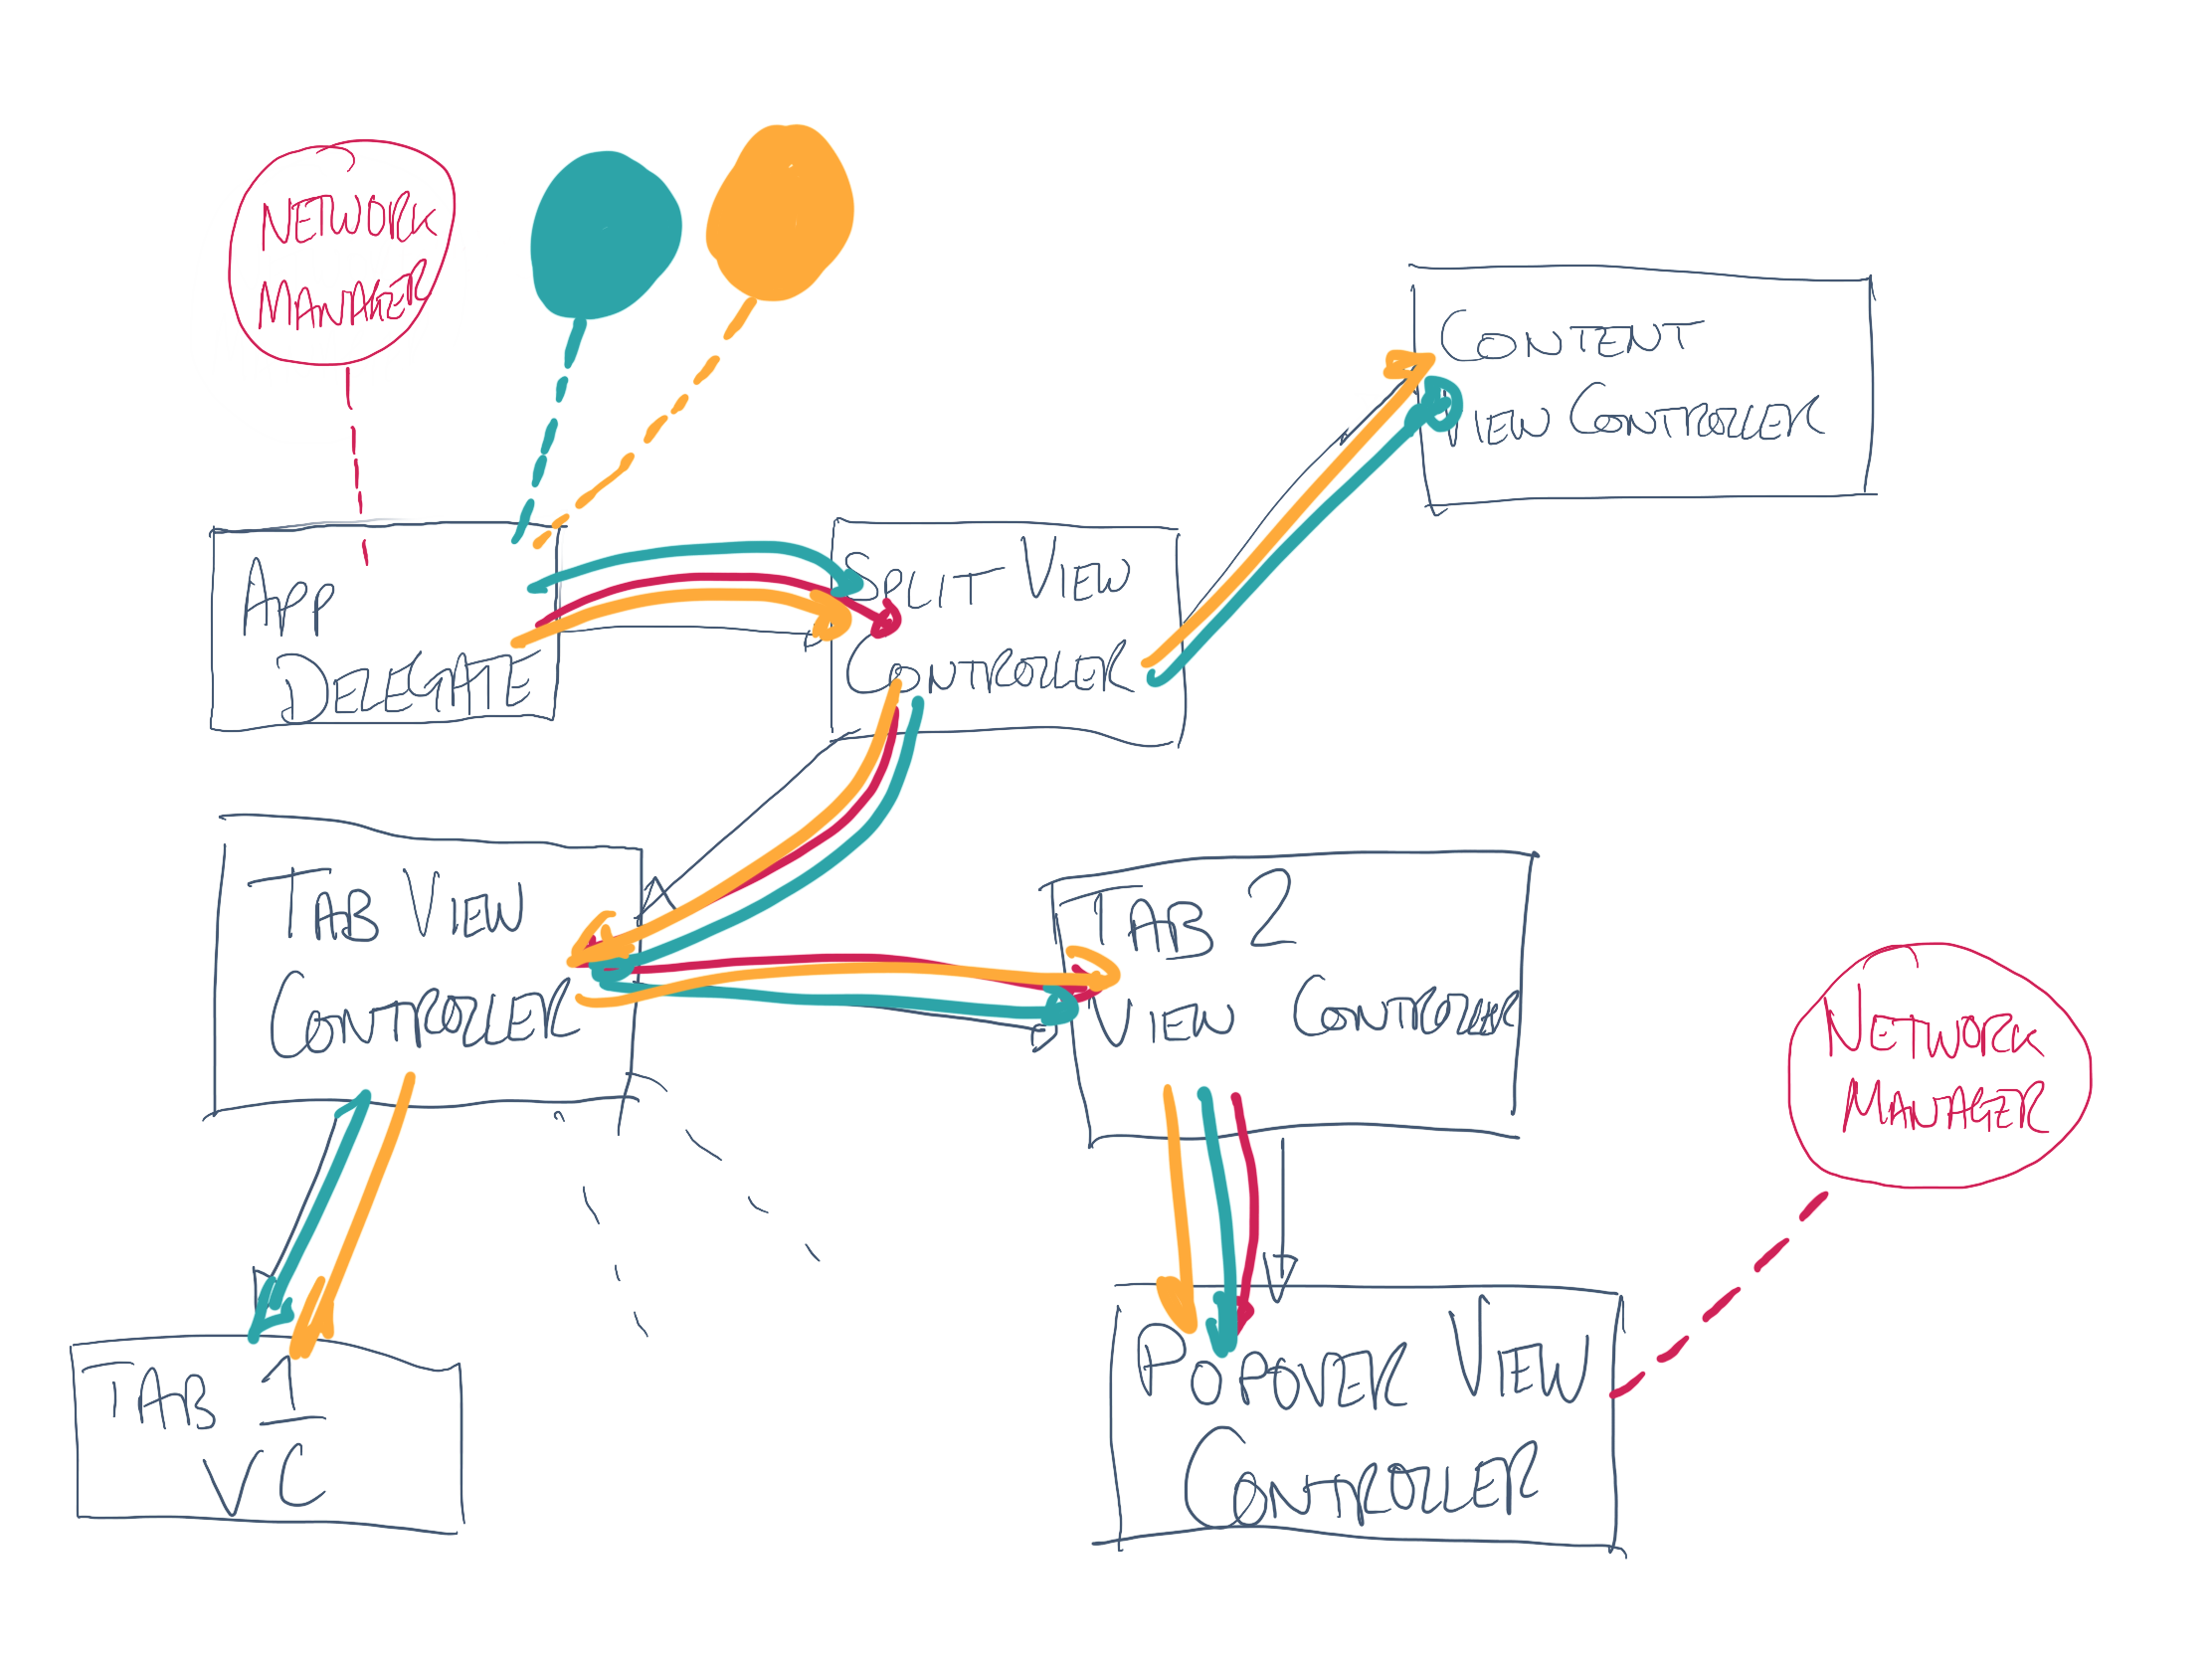 NETWORK
MANAGER
CONTENT
VIEW CONTROLLER
APP
DELEGATE
SPLIT VIEW
CONTROLLER
TAB VIEW
CONTROLLER
TAB 2
VIEW CONTROLLER
NETWORK
MANAGER
TAB 1
VC
POPOVER VIEW
CONTROLLER